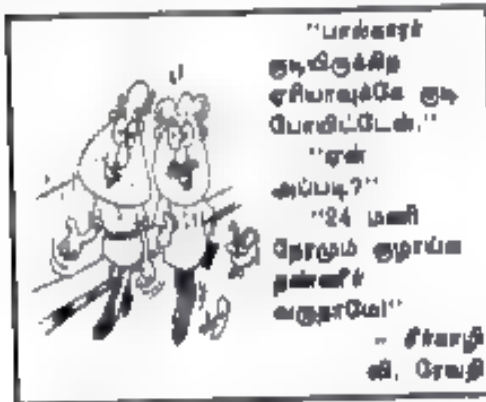 "பால்காரர்
குடியிருக்கிற
ஏரியாவுக்கே குடி
போயிட்டேன்."
"ஏன்
அப்படி?"
"24 மணி
நேரமும் குழாய்ல
தண்ணீர்
வருதாமே!"
- சீர்காழி
வி. ரேவதி